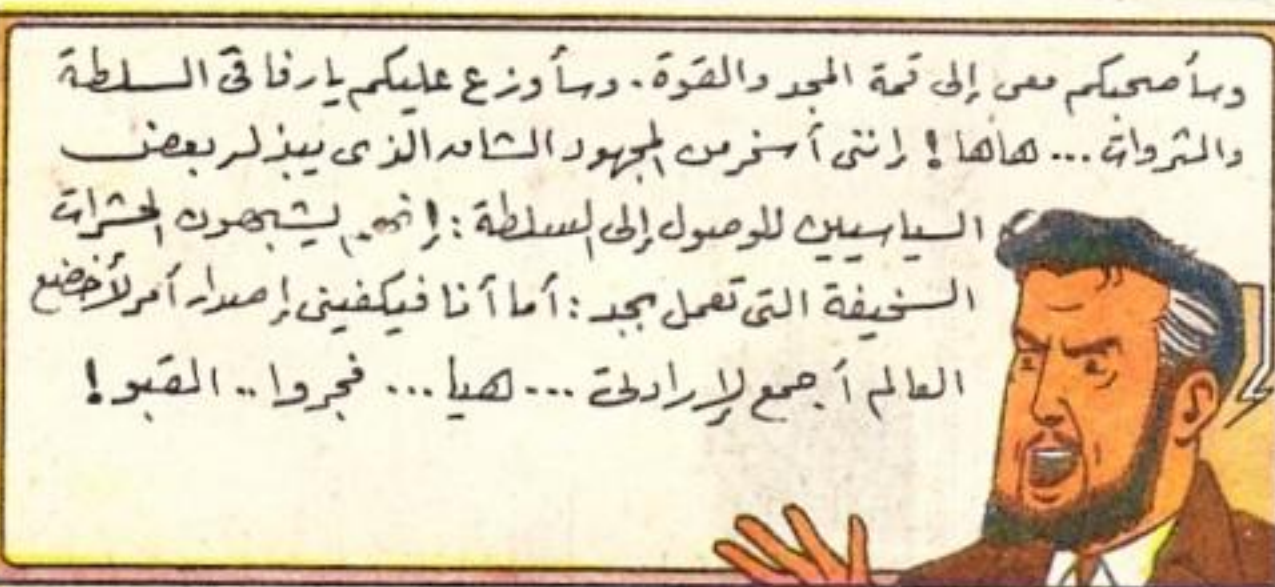 وسأصحبكم معى إلى قمة المجد والقوة. وسأوزع عليكم يا رفاقى السلطة
والثروات... هاها! إننى أسخر من المجهود الشاق الذى يبذله بعض
السياسيين للوصول إلى السلطة: إنهم يشبهون الحشرات
السخيفة التى تعمل بجد: أما أنا فيكفينى إصدار أمر لأخضع
العالم أجمع لإرادتى... هيا... فجروا.. القبو!